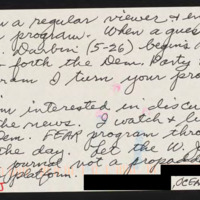 a regular viewer + en
program. When a gues
Durbin (5-26) begins
forth the Dem. Party
ram I turn your pro
interested in discu
the news. I watch & li
Dem. FEAR program thro
the day. Let the W. J
journal not a propagand
platform.
OCEA